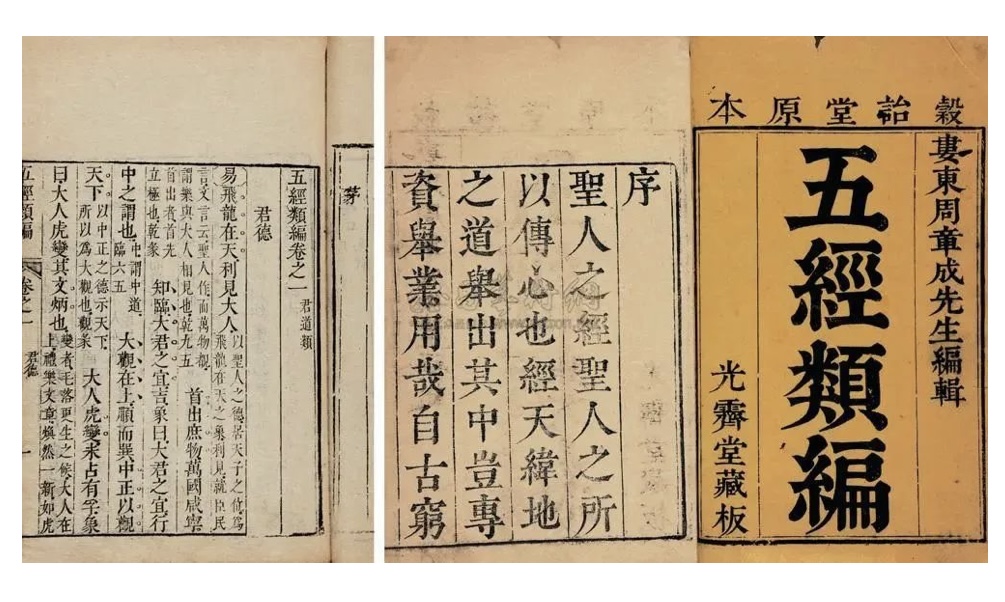 穀詒堂原本
婁東周章成先生編輯
五經類編
光霽堂藏板
序
聖人之經聖人之所
以傳心也經天緯地
之道舉出其中豈專
資舉業用哉自古窮
茅
五經類編卷之一 君道類
君德
易飛龍在天利見大人以聖人之德居天子之位爲飛龍在天之象利見就臣民
言文言云聖人作而萬物覩謂樂與大人相見也乾九五首出庶物萬國咸寧
首出者首先立極也乾彖知臨大君之宜吉象曰大君之宜行
中之謂也中謂中道臨六五大觀在上順而巽中正以觀
天下以中正之德示天下所以爲大觀也觀彖大人虎變未占有孚象
曰大人虎變其文炳也變者毛落更生之候大人在上禮樂文章煥然一新如虎
五經類編 卷之一 君德 一